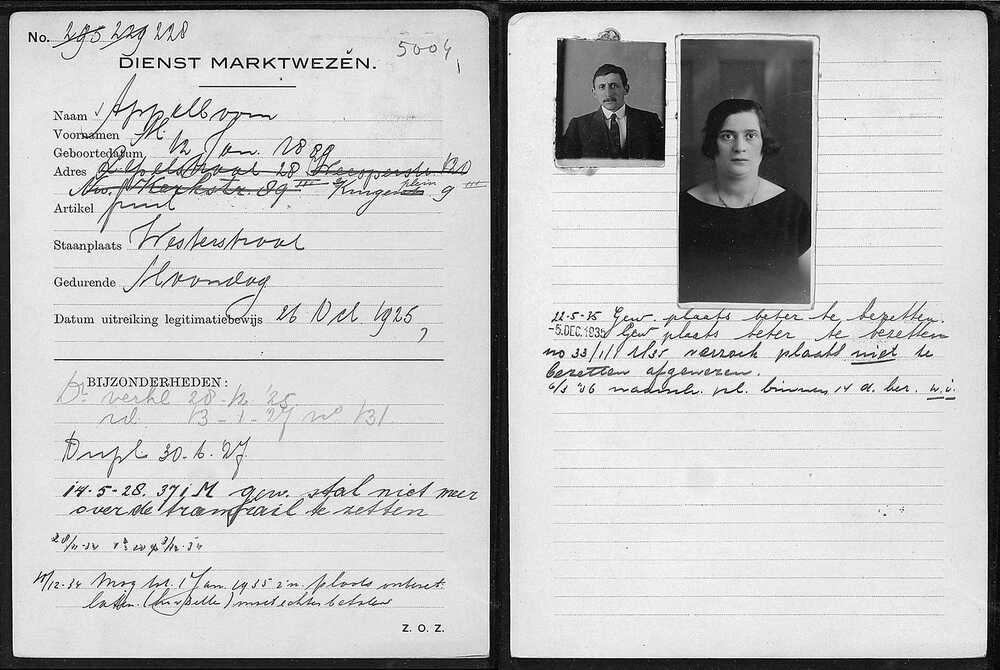 No. 295 229 228
5004
DIENST MARKTWEZEN.
Naam Appelboom
Voornamen M.
Geboortedatum 12 Jan. 1889
Adres 28
Nw. Kerkstr. 89 III plein 9 III
Artikel fruit
Staanplaats Westerstraat
Gedurende Maandag
Datum uitreiking legitimatiebewijs 26 Oct. 1925,
BIJZONDERHEDEN:
verhl 28-12-25
id. 13-1-27 no 131
Dupl. 30-6-27
14-5-28. 371 M gew. stal niet meer
over de tramrail te zetten
12-34 Mag tot 1 Jan. 1935 z'n plaats onbezet
laten. moet echter betalen
Z. O. Z.
22-5-35 Gew. plaats beter te bezetten.
-5.DEC.1935 Gew plaats beter te bezetten
no 33/1/1 1/35 verzoek plaats niet te
bezetten afgewezen.
6/3 '36 pl. binnen 14 d. bez. w.i.